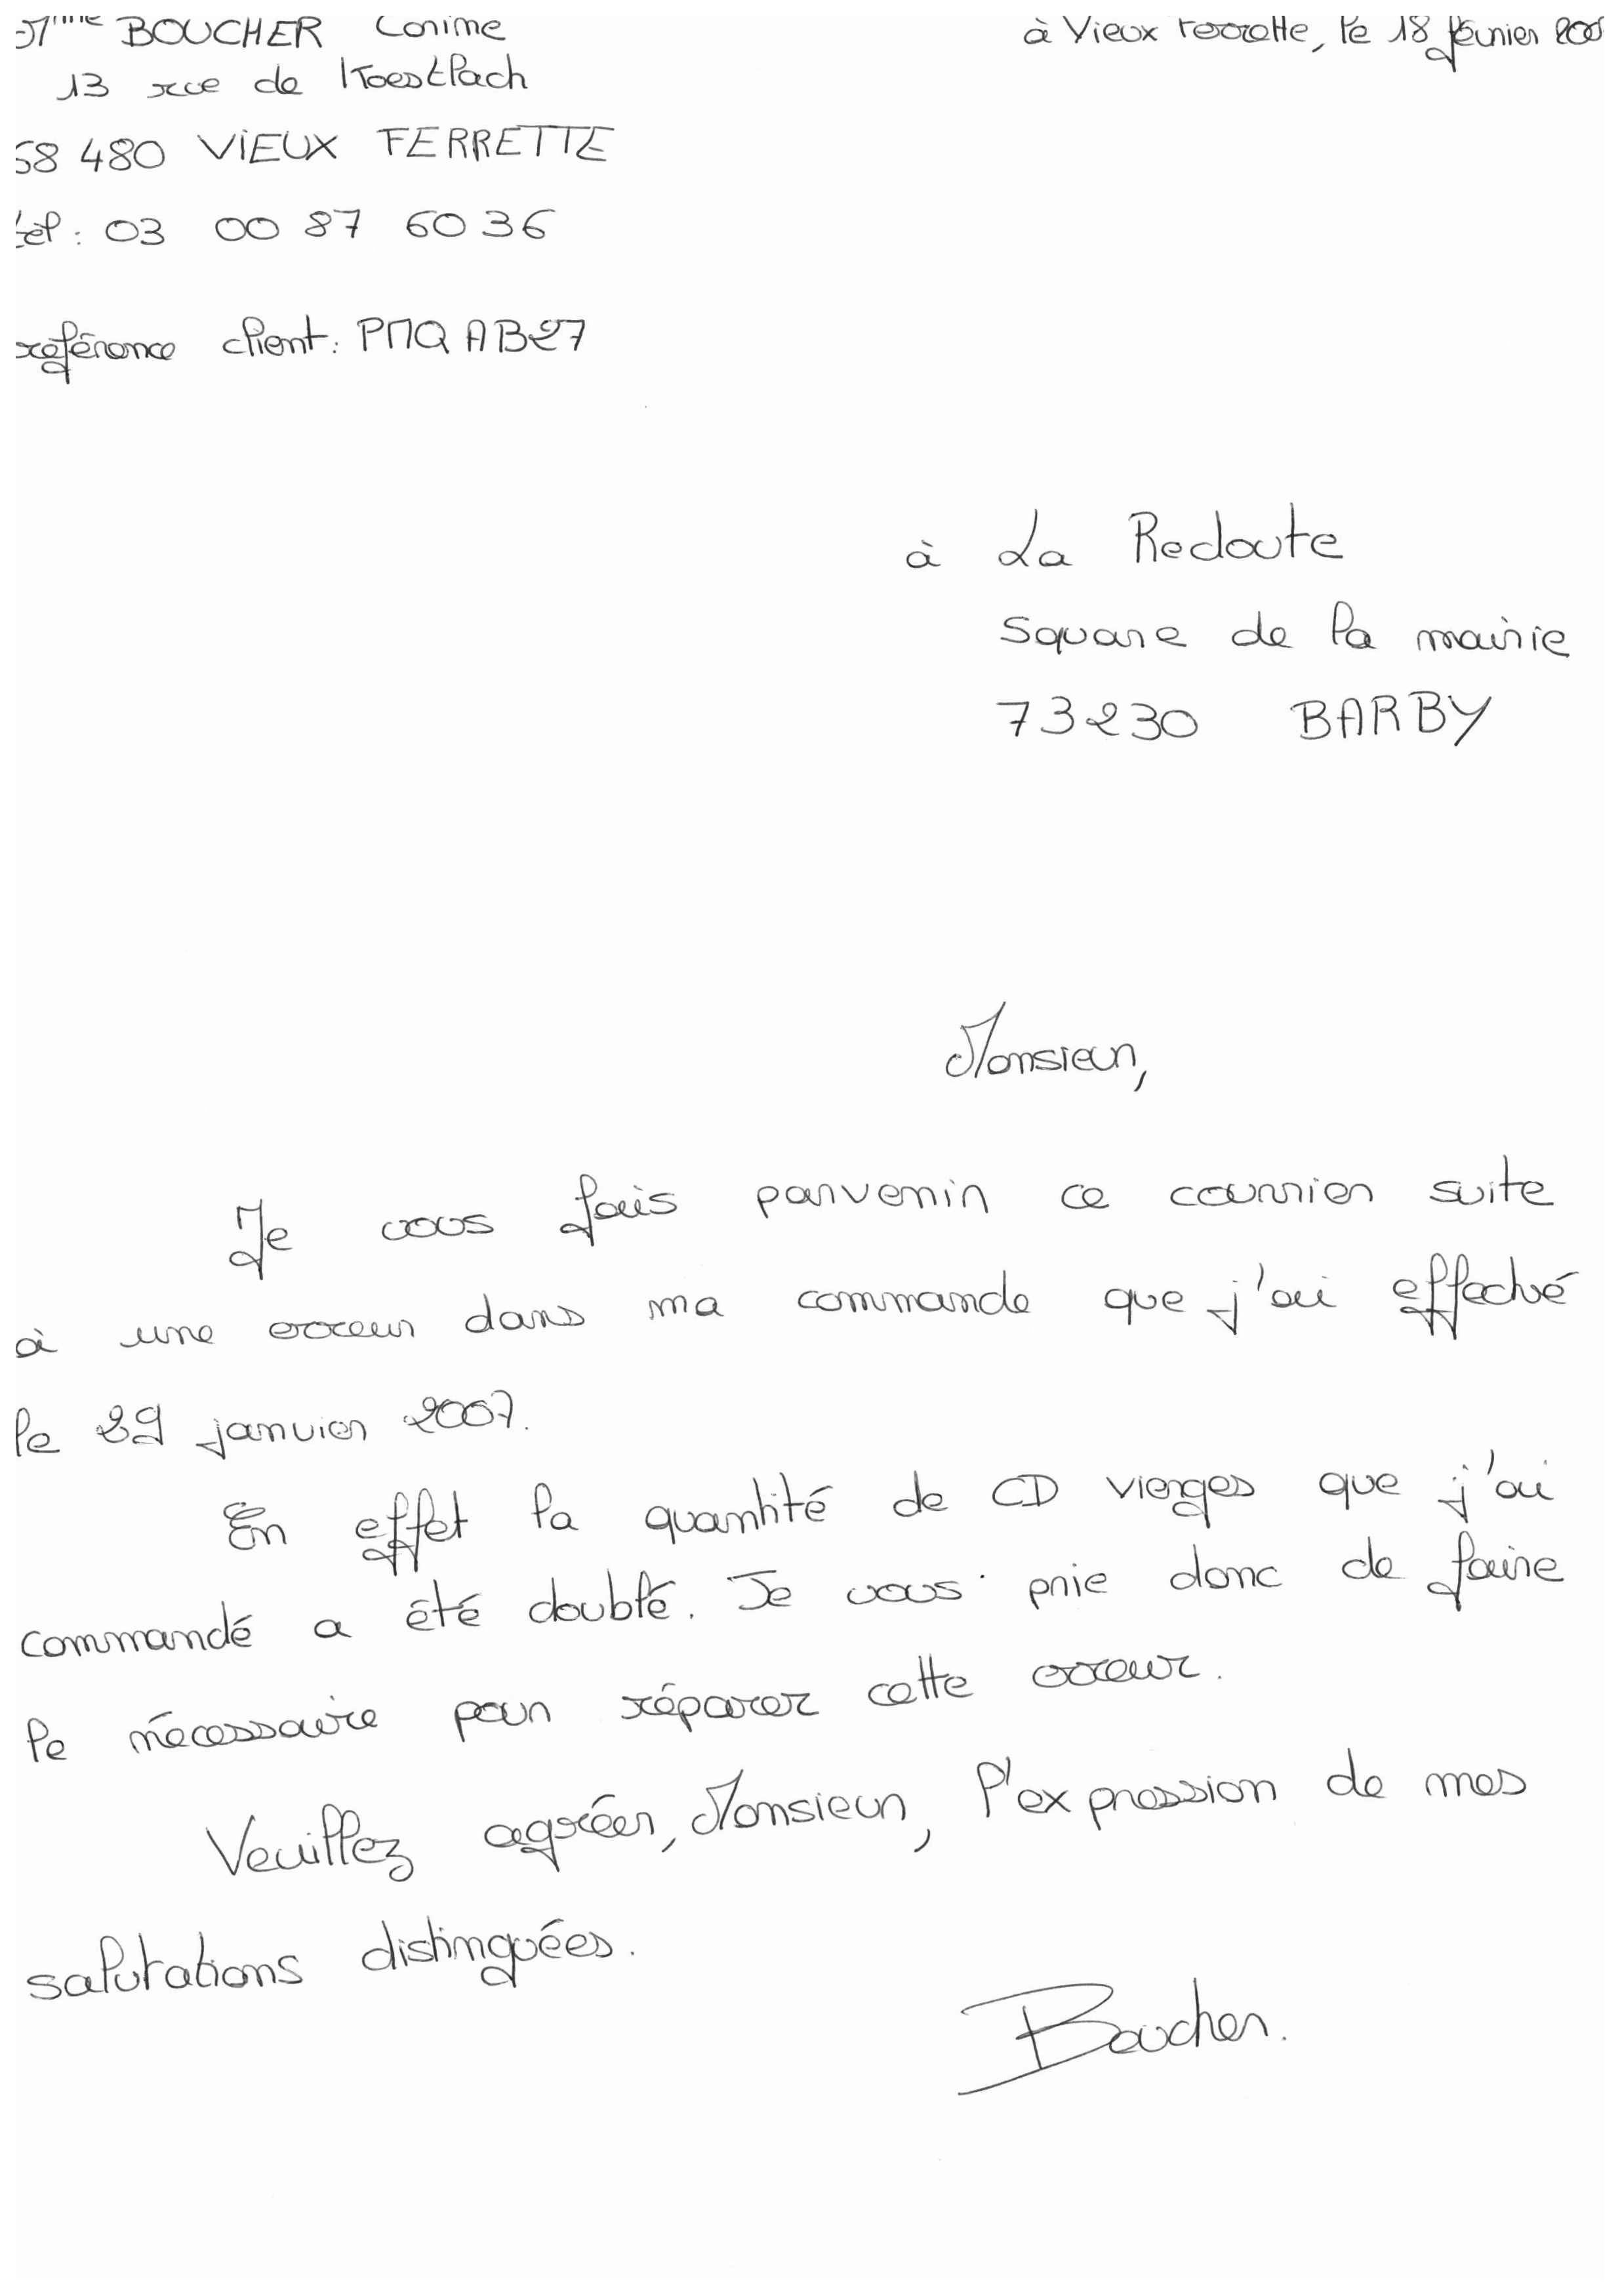 Mme BOUCHER Corinne
à Vieux Ferrette, le 18 février
13 rue de Koestlach
68 480 VIEUX FERRETTE
tél : 03 00 87 60 36
référence client : PMQAB27
à La Redoute
Square de la mairie
73230 BARBY
Monsieur,
Je vous fais parvenir ce courrier suite
à une erreur dans ma commande que j'ai effectué
le 29 janvier 2007.
En effet la quantité de CD vierges que j'ai
commandé a été doublé. Je vous prie donc de faire
le nécessaire pour réparer cette erreur.
Veuillez agréer, Monsieur, l'expression de mes
salutations distinguées.
Boucher.